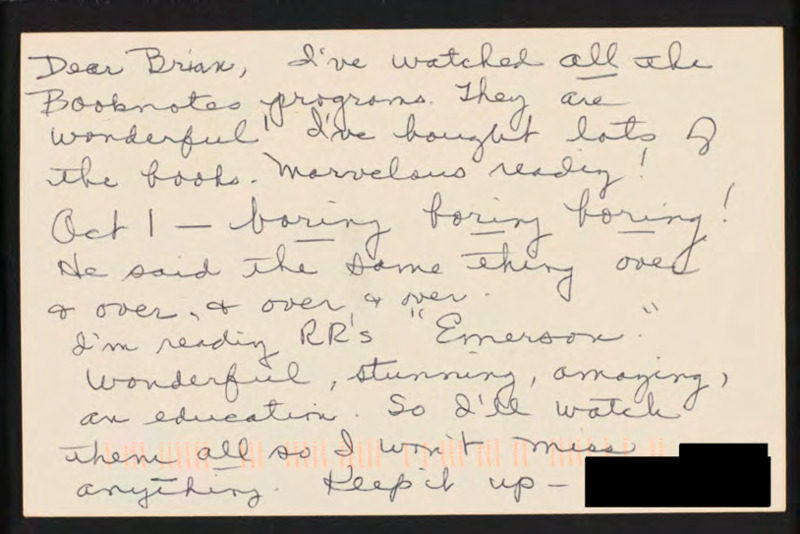 Dear Brian, I've watched all the
Booknotes programs. They are
wonderful! I've bought lots of
the books. Marvelous reading!
Oct 1 — boring boring boring!
He said the same thing over
& over, & over & over.
I'm reading RR's "Emerson."
Wonderful, stunning, amazing,
an education. So I'll watch
them all so I won't miss
anything. Keep it up —